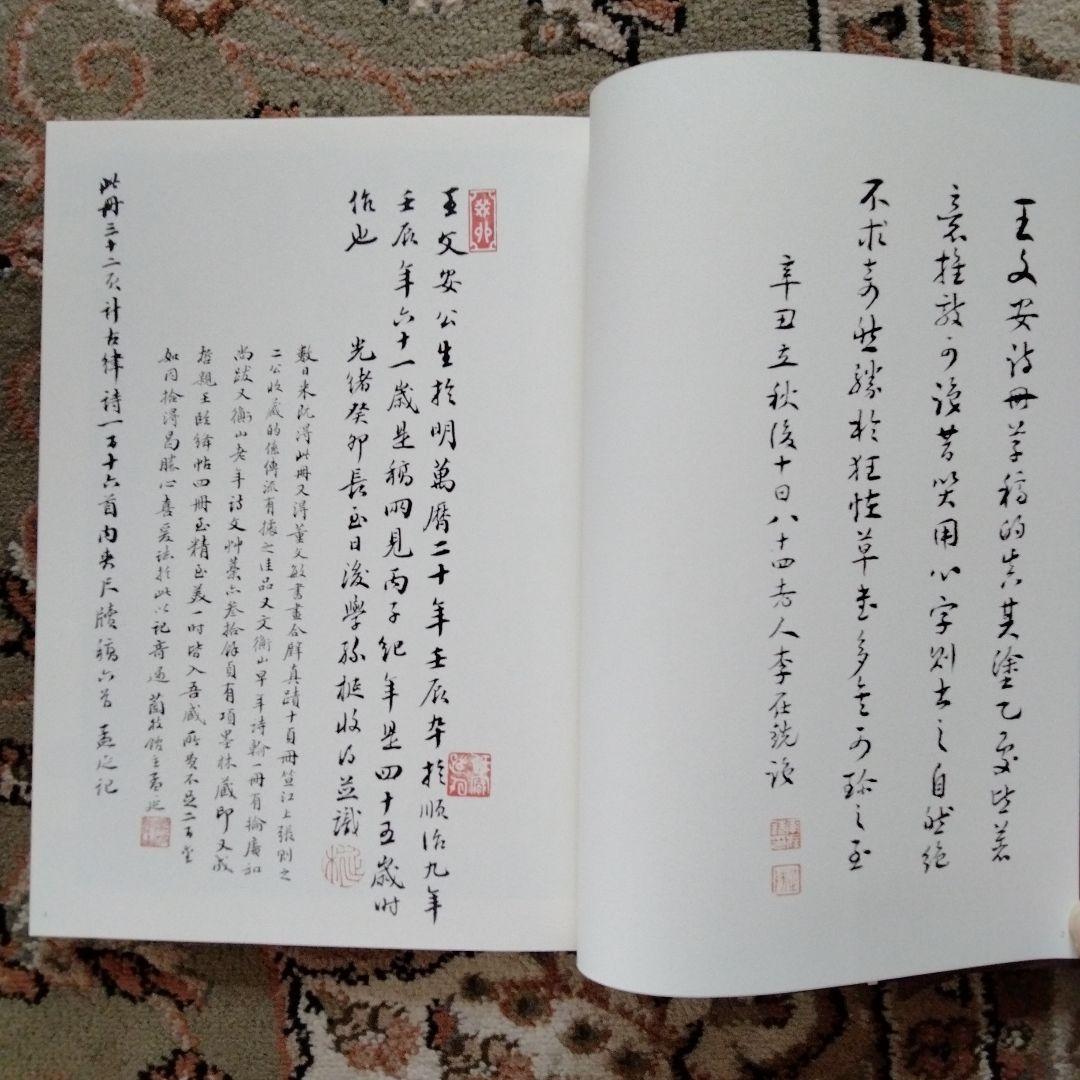 王文安詩冊草稿的真其塗乙處皆著
意推敲可讀昔筆用心字則出之自然絕
不求奇此勝於狂怪草書多矣可珍之至
辛丑立秋後十日八十四老人李在銑識
癸卯
王文安公生於明萬曆二十年壬辰卒於順治九年
壬辰年六十一歲是稿兩見丙子紀年是四十五歲時
作也
光緒癸卯長至日後學孫梃收得並識
數日來既得此冊又得董文敏書畫合璧真蹟十頁冊笪江上張則之
二公收藏的係傳派有據之佳品又文衡山早年詩翰一冊有
尚跋又衡山老年詩文艸稾六叁拾餘頁有項墨林藏印又成
哲親王臨絳帖四冊至精至美一時皆入吾藏所費不足二百金
如同拾得曷勝心喜爰誌於此以記奇遇
此冊三十二頁計古律詩一百十六首內夾尺牘稿六首孟延記